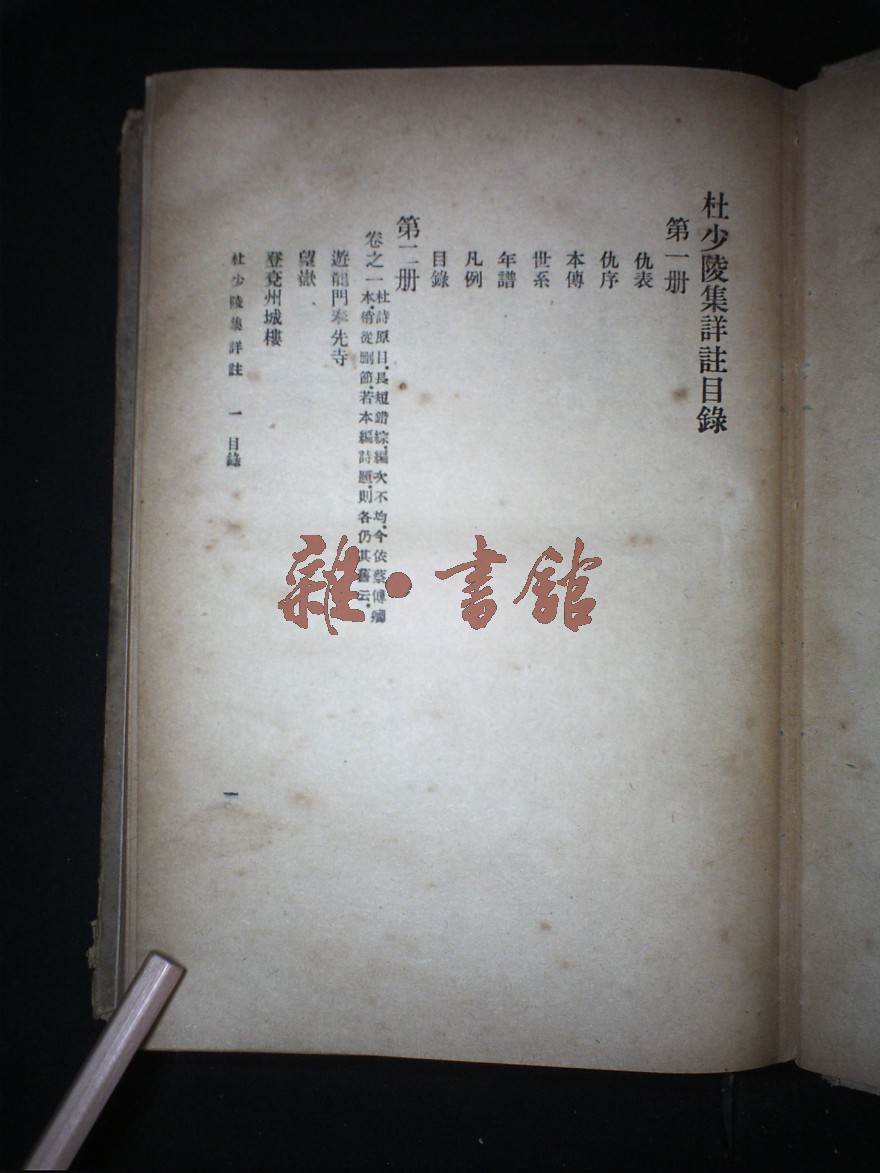 杜少陵集詳註目錄
第一册
仇表
仇序
本傳
世系
年譜
凡例
目錄
第二册
卷之一
杜詩原目，長短錯綜，編次不均，今依蔡傅
本，稍從刪節，若本編詩題，則各仍其舊云。
遊龍門奉先寺
望嶽
登兗州城樓
杜少陵集詳註 一 目錄
一
雜·書館